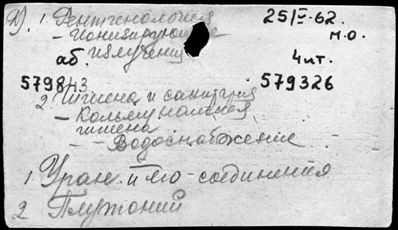 1. Рентгенология 25/V-62.
- Ионизирующие м.о.
излучения
аб. 4 ит.
579843 579326
2 Гигиена и санитария
- Коммунальная
гигиена
- - Водоснабжение
1 Уран и его соединения
2 Плутоний